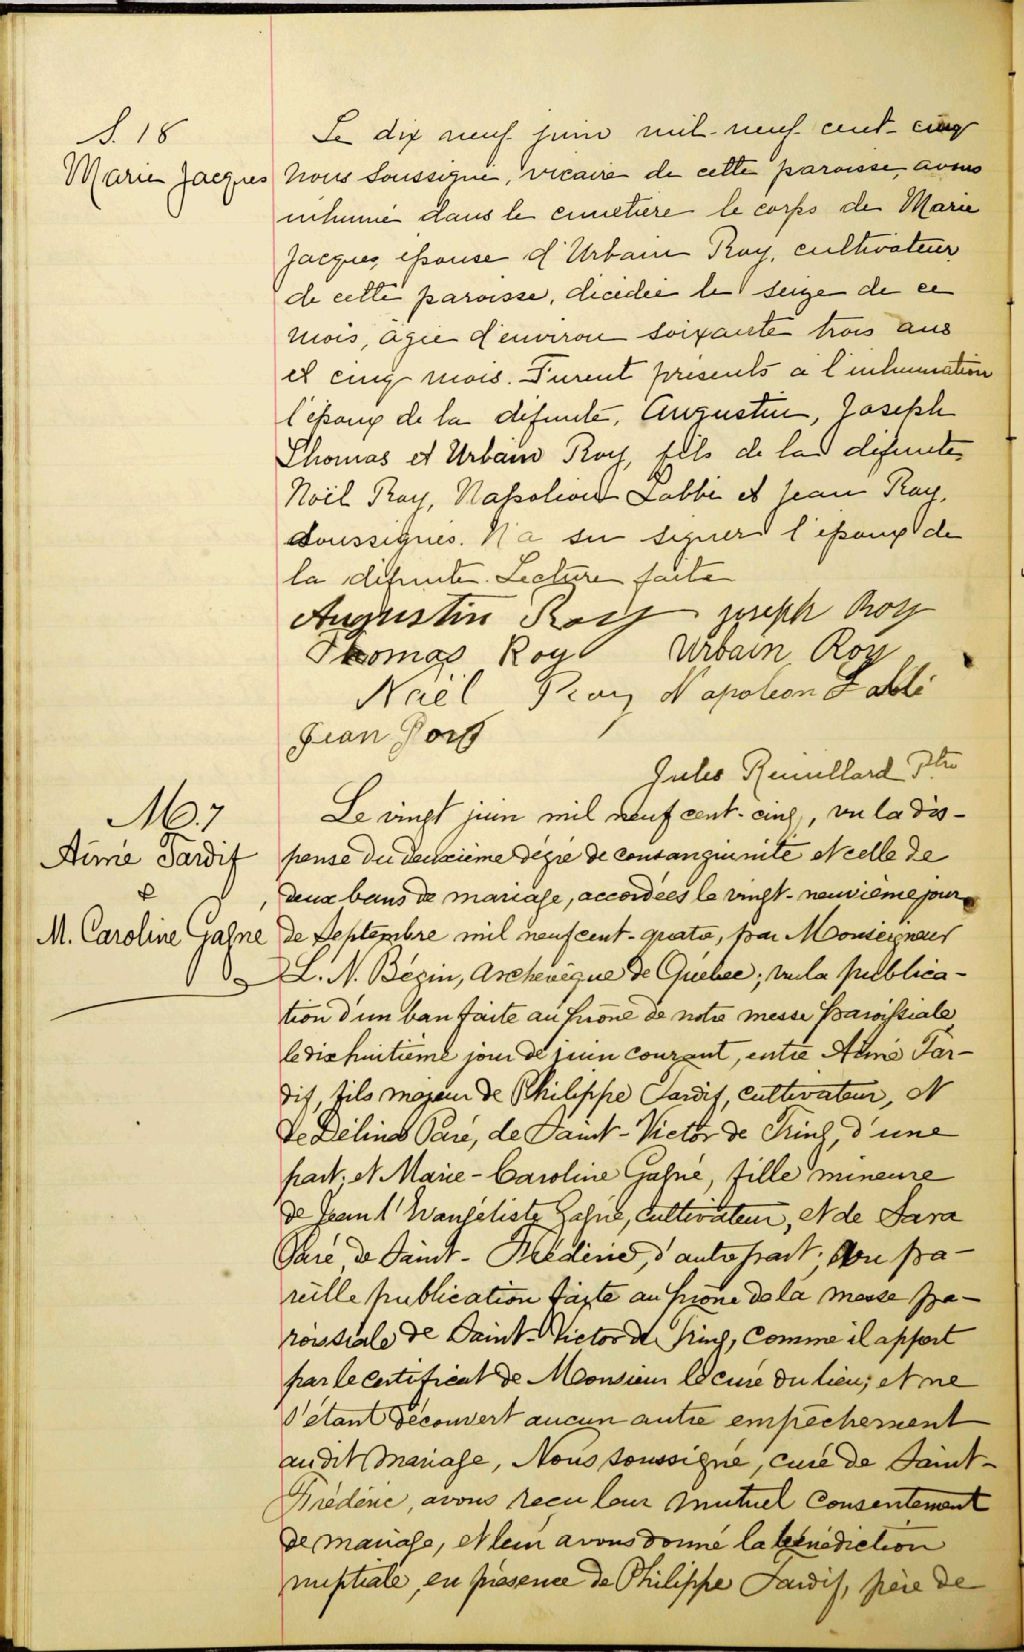 S. 18
Marie Jacques
Le dix neuf juin mil-neuf cent-cinq
nous soussigné, vicaire de cette paroisse, avons
inhumé dans le cimetière le corps de Marie
Jacques, épouse d'Urbain Roy, cultivateur
de cette paroisse, décédée le seize de ce
mois, âgée d'environ soixante trois ans
et cinq mois. Furent présents à l'inhumation
l'époux de la défunte, Augustin, Joseph
Thomas et Urbain Roy, fils de la défunte,
Noël Roy, Napoléon Labbé et Jean Roy,
soussignés. N'a su signer l'époux de
la défunte. Lecture faite
Augustin Roy Joseph Roy
Thomas Roy Urbain Roy
Noël Roy Napoléon Labbé
Jean Roy
Jules Rouillard Ptre
M. 7
Aimé Tardif
&
M. Caroline Gagné
Le vingt juin mil neuf cent-cinq, vu la dis-
pense du deuxième dégré de consanguinité et celle de
deux bans de mariage, accordées le vingt-neuvième jour
de Septembre mil neuf cent-quatre, par Monseigneur
L. N. Bégin, Archevêque de Québec; vu la publica-
tion d'un ban faite au prône de notre messe paroissiale
le dix huitième jour de juin courant, entre Aimé Tar-
dif, fils majeur de Philippe Tardif, cultivateur, et
de Délina Paré, de Saint-Victor de Tring, d'une
part; et Marie-Caroline Gagné, fille mineure
de Jean l'Evangéliste Gagné, cultivateur, et de Sara
Paré, de Saint-Frédéric, d'autre part; vu pa-
reille publication faite au prône de la messe pa-
roissiale de Saint-Victor de Tring, comme il appert
par le certificat de Monsieur le curé du lieu; et ne
s'étant découvert aucun autre empêchement
au dit mariage, Nous soussigné, curé de Saint-
Frédéric, avons reçu leur mutuel consentement
de mariage, et leur avons donné la bénédiction
nuptiale, en présence de Philippe Tardif, père de